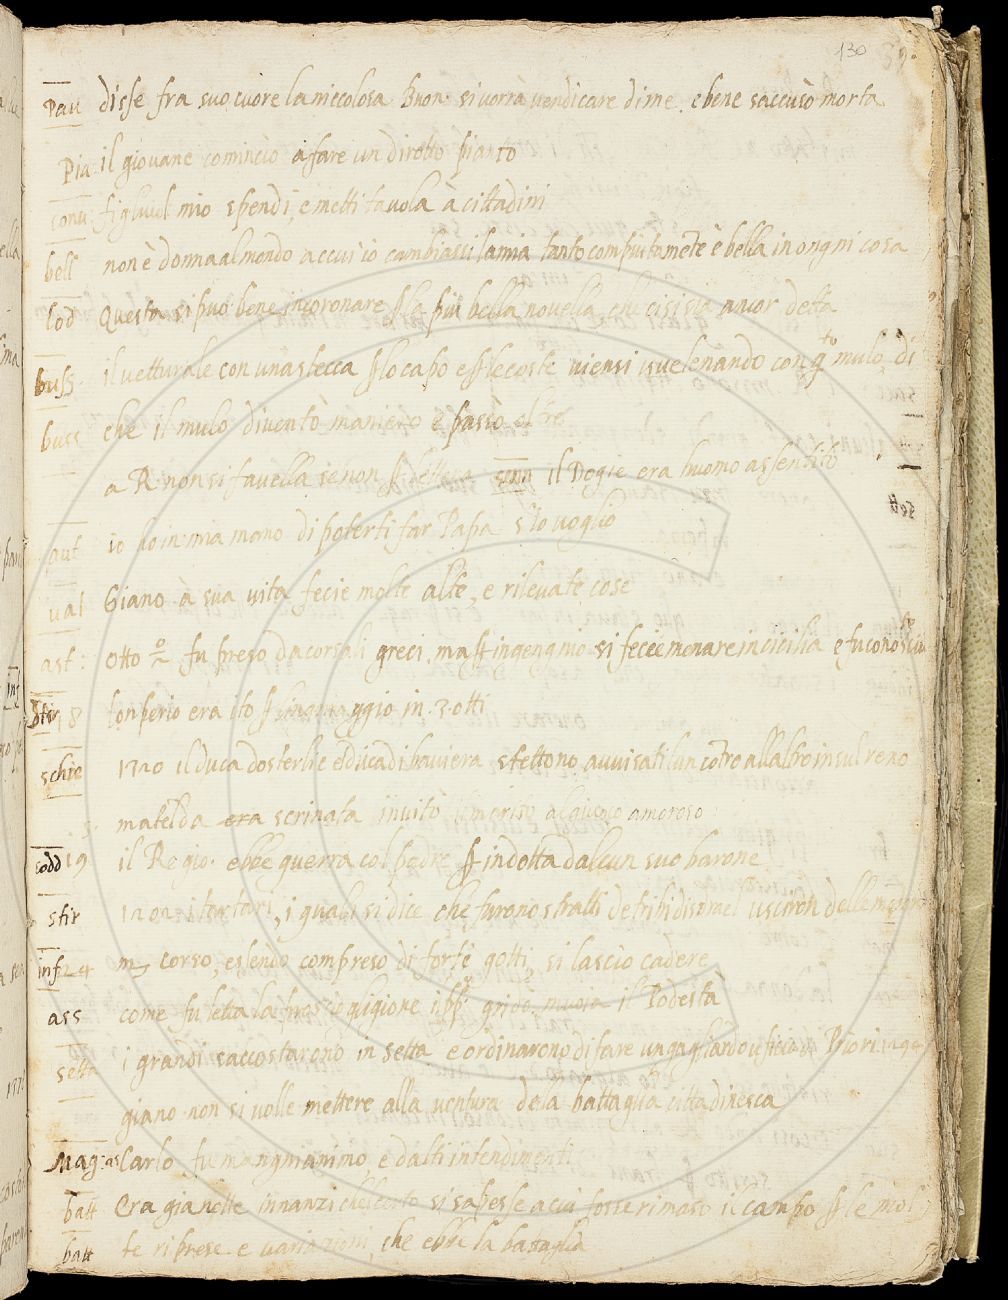 130
39
Pau disse fra suo cuore la niccolosa Buon: si vorrà vendicare di me e bene saccusò morta
Pia: il giovane cominciò a fare un dirotto pianto
conu figliuol mio spendi, e metti tavola à cittadini
bell non è donna al mondo a ccui io cambiassi la mia tanto compiutamete è bella in ongni cosa
lod Questa si può bene incoronare p la più bella novella che ci si sia ancor detta
buss il vetturale con una stecca p lo capo e p le coste viensi isvelenando con q.to mulo, di
buss che il mulo diventò maniero e passò oltre
a R non si favella se non p lettera il Dogie era huomo assentito
aut io ho in mia mano di poterti far Papa s'io voglio
val Giano à sua vita fecie molte alte, e rilevate cose
ast: Otto fu preso da corsali greci, ma p ingengnio si feciemenare in cicilia e fu conosciu
18 lonperio era ito p in 3 otti
schie 1320 il duca dosterlic e'l duca di baviera stettono avvisati lun cotro allaltro in sul reno
matelda era scrinata invitò il marito al giuoco amoroso
sodd 19 il Re gio: ebbe guerra col padre p indotta dalcun suo barone
stir 1202 i tartari, i quali si dice che furono stratti de tribi disrael usciron delle montan
inf 24 m corso, essendo compreso di forte gotti, si lasciò cadere
ass come fu letta la gridò muoia il Podestà
setta i grandi saccostarono in setta e ordinarono di fare un gagliardo uficio di Priori 1294
giano non si volle mettere alla ventura dela battaglia cittadinesca
Mag: as Carlo fu mangnianimo, e d'alti intendimenti
batt Era gia notte innanzi chel certo si sapesse a cui fosse rimaso il campo p le mol
batt te riprese e variazioni, che ebbe la battaglia